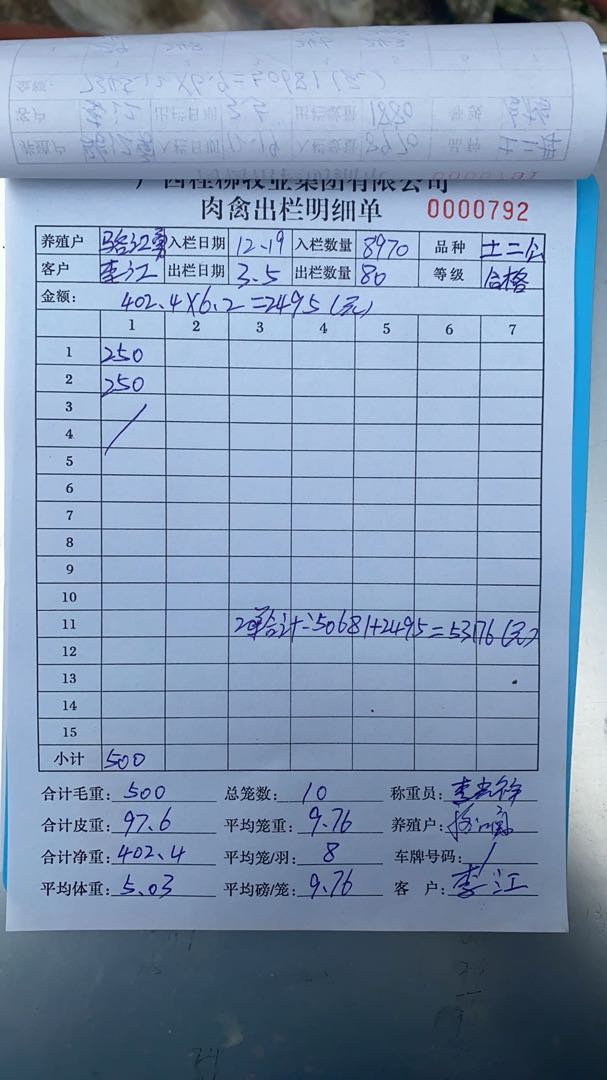 广西桂柳牧业集团有限公司
肉禽出栏明细单 0000792
养殖户 骆江勇 入栏日期 12.19 入栏数量 8970 品种 土二公
客户 李江 出栏日期 3.5 出栏数量 80 等级 合格
金额: 402.4×6.2=2495(元)
1 2 3 4 5 6 7
1 250
2 250
3
4
5
6
7
8
9
10
11 2单合计:50681+2495=53176(元)
12
13
14
15
小计 500
合计毛重: 500 总笼数: 10 称重员:
合计皮重: 97.6 平均笼重: 9.76 养殖户:
合计净重: 402.4 平均笼/羽: 8 车牌号码: /
平均体重: 5.03 平均磅/笼: 9.76 客户: 李江